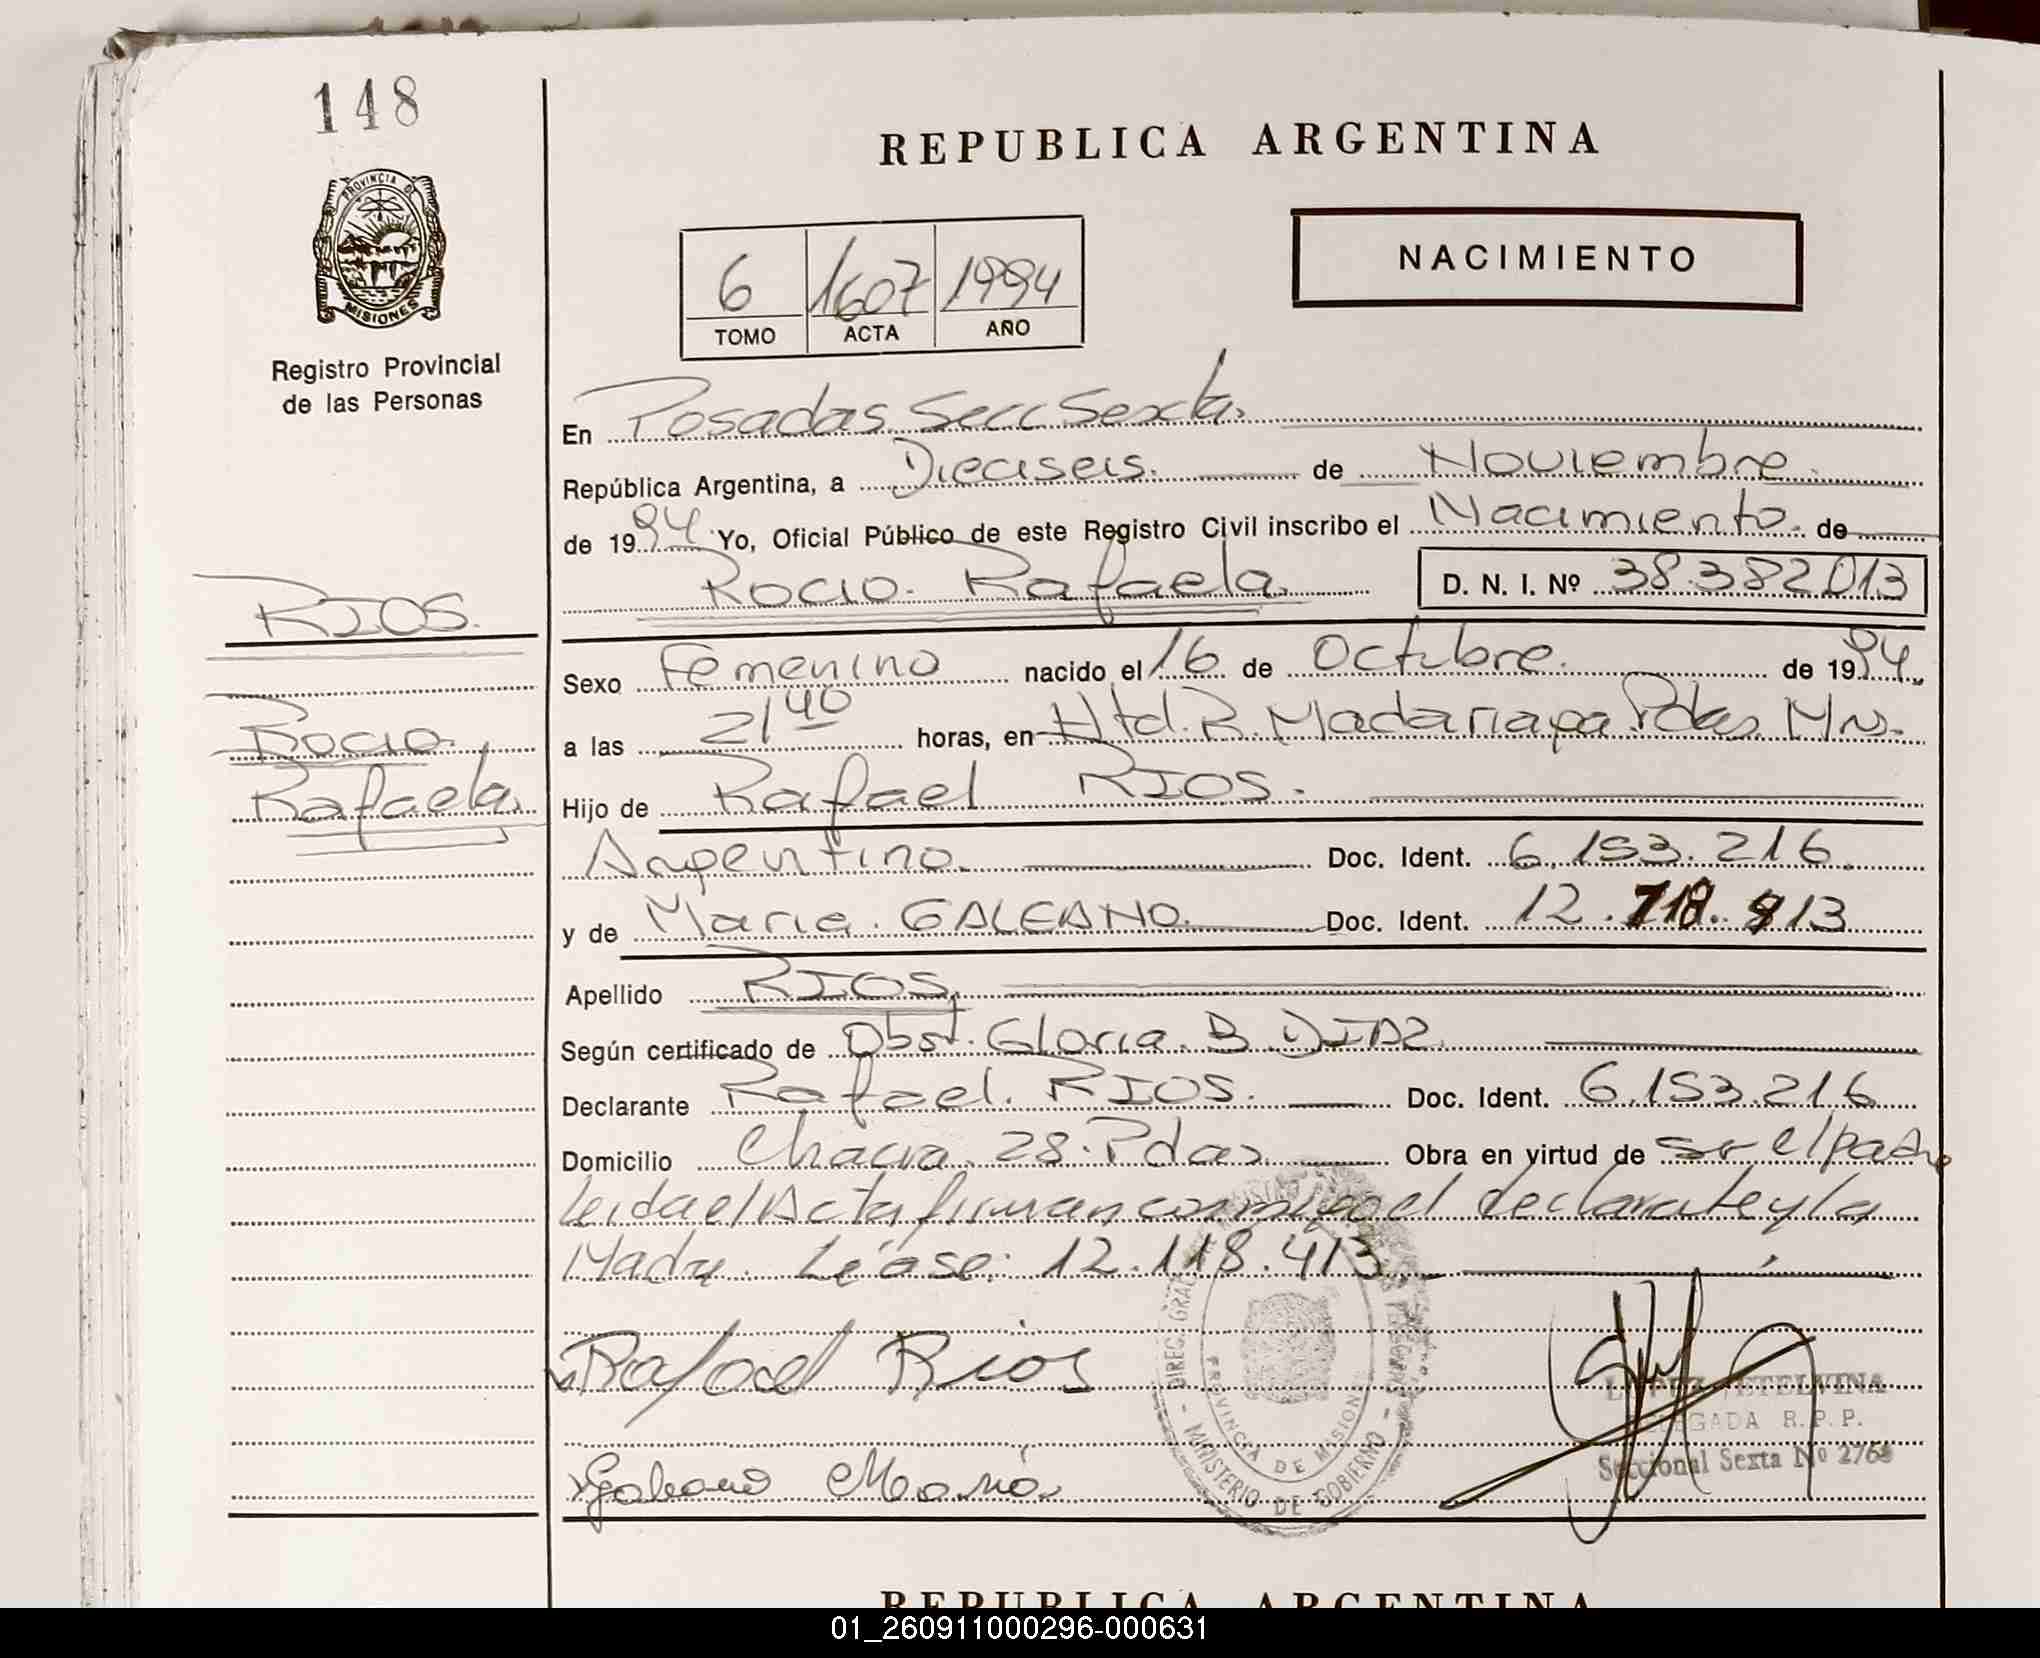 148
REPUBLICA ARGENTINA
PROVINCIA DE
MISIONES
NACIMIENTO
6 1607 1994
TOMO ACTA AÑO
Registro Provincial
de las Personas
En Posadas Secc Sexta.
República Argentina, a Dieciseis. de Noviembre.
de 1994 Yo, Oficial Público de este Registro Civil inscribo el Nacimiento. de
Rocio. Rafaela. D. N. I. Nº 38.382013
RIOS.
Sexo Femenino nacido el 16 de Octubre. de 1994.
Rocio. a las 21 40 horas, en Htd. R. Madariaga Pdas. Mns.
Rafaela. Hijo de Rafael RIOS.
Argentino. Doc. Ident. 6.153.216.
y de Maria. GALEANO. Doc. Ident. 12.718.913
Apellido RIOS,
Según certificado de Obst. Gloria. B. DIAZ.
Declarante Rafael. RIOS. Doc. Ident. 6.153.216
Domicilio Chacra. 28. Pdas. Obra en virtud de ser el padre
Leida el Acta firman conmigo el declarate y la
Madre. Léase: 12.118.413.
Rafael Rios
Galeano Maria
DIREC. GRAL.
PROVINCIA DE MISIONES
- MINISTERIO DE GOBIERNO -
ETELVINA
DELEGADA R. P. P.
Seccional Sexta Nº 2768
REPUBLICA ARGENTINA
01_260911000296-000631